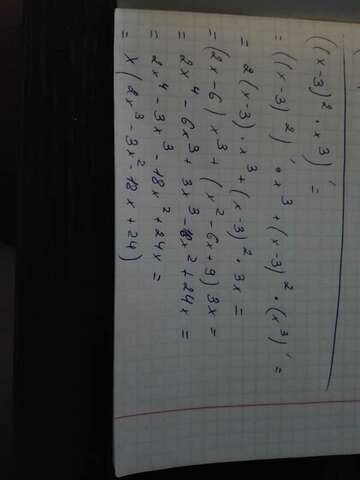 ((x-3)² · x³)' =
= ((x-3)²)' · x³ + (x-3)² · (x³)' =
= 2(x-3) · x³ + (x-3)² · 3x =
= (2x-6) x³ + (x² - 6x + 9) 3x =
= 2x⁴ - 6x³ + 3x³ - 18x² + 24x =
= 2x⁴ - 3x³ - 18x² + 24x =
= x(2x³ - 3x² - 18x + 24)